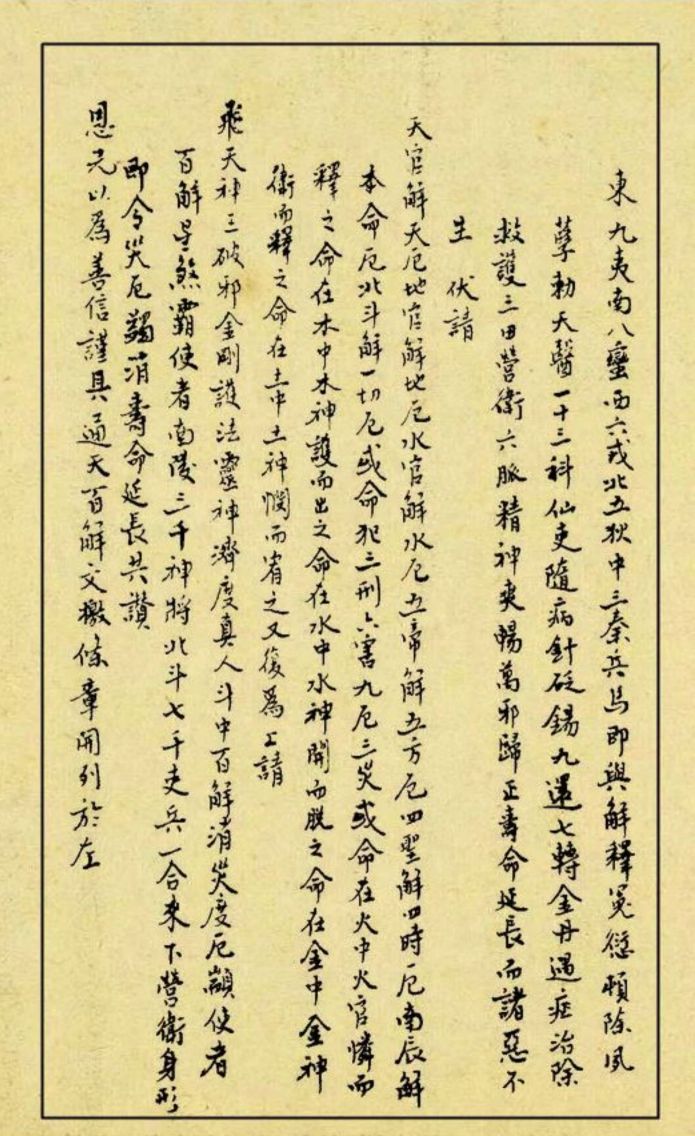 東九夷南八蠻西六戎北五狄中三秦兵馬即與解釋冤愆頓除夙
孽勅天醫一十三科仙吏隨病針砭錫九還七轉金丹遇症治除
救護三田營衛六脈精神爽暢萬邪歸正壽命延長而諸惡不
生 伏請
天官解天厄地官解地厄水官解水厄五帝解五方厄四聖解四時厄南辰解
本命厄北斗解一切厄或命犯三刑六害九厄三災或命在火中火官憐而
釋之命在木中木神護而出之命在水中水神開而脫之命在金中金神
衛而釋之命在土中土神憫而宥之又復爲上請
飛天神王破邪金剛護法靈神濟度真人斗中百解消災度厄顓使者
百解星煞霸使者南陵三千神將北斗七千吏兵一合來下營衛身形
即令災厄蠲消壽命延長共讚
恩元以為善信謹具通天百解文檄條章開列於左